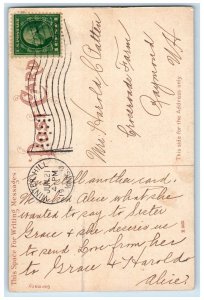 POST CARD
Mrs Harold C Patten
Crossroads Farm
Raymond
N.H.
This side for the Address only.
This Space for Writing Messages
WINTER HILL
JUN 21
PM
Still another card.
We Ask Alice what she
wants to say to Sister
Grace & she desires us
to send Love from her
to Grace & Harold
Alice